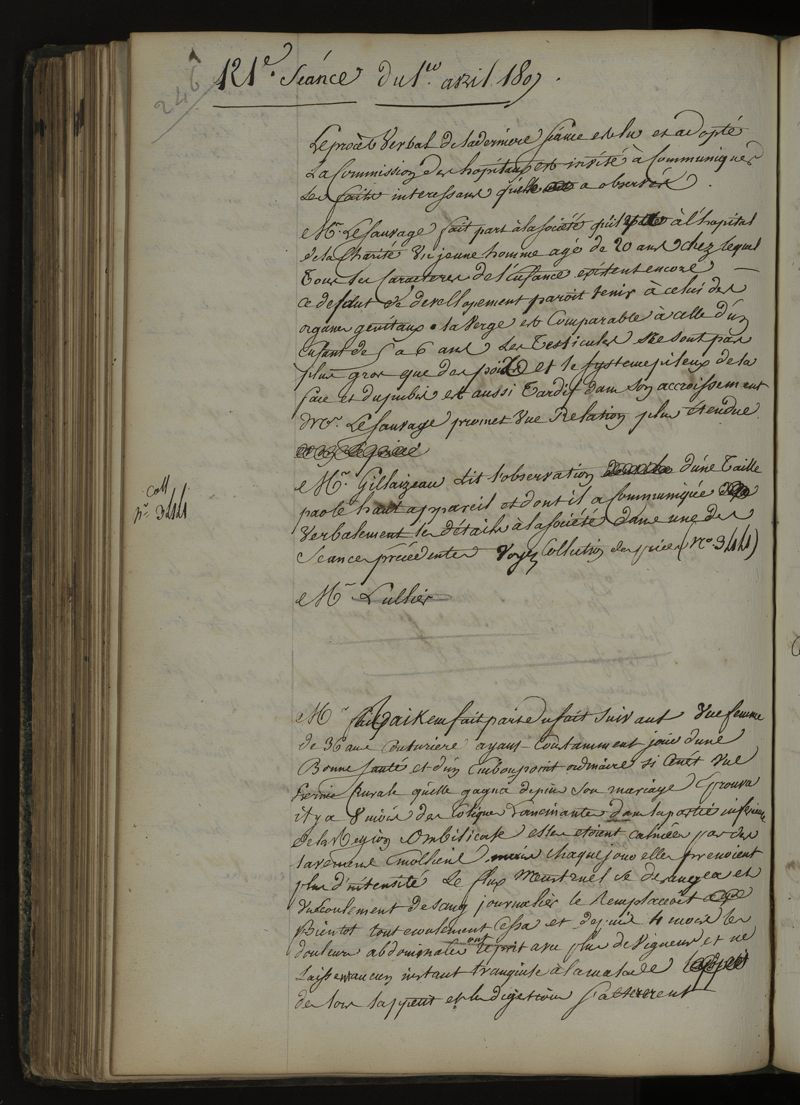 246
121e. Séance du 1er. avril 1807.
Le procès Verbal de la derniere séance est lu et adopté
La Commission des hopitaux est invité à Communiquer
les faits interessans qu'elle a observés.
Mr. Lesauvage fait part à la société qu'il à l'hopital
de la Charité Un jeune homme agé de 20 ans chez lequel
Tous les Caracteres de l'Enfance existent encore
Ce defaut de devellopement paroit tenir à celui des
organes genitaux. la Verge est Comparable à celle d'un
Enfant de 5 a 6 ans Les Testicules ne sont pas
plus gros que des pois et le systeme pileux de la
face et du pubis est aussi Tardif dans son accroissement
Mr. Lesauvage promet Une Relation plus étendue
Mr. Gillaizeau lit l'observation d'une Taille
par le haut appareil et dont il a Communiquée
Verbalement les détails à la société dans une des
Seances précédentes Voyez Collection des pièces (No. 344)
Coll
no. 344
Mr. Lullier
Mr. Gaikem fait part du fait suivant Une femme
de 36 ans Couturiere ayant Constamment joui d'une
Bonne santé et d'un Embonpoint ordinaire si Une
hernie Crurale qu'elle gagna depuis son mariage Eprouva
il y a 8 mois des Coliques Lancinantes dans la partie inferieure
de la Region Ombilicale elles etoient calmées par des
lavemens Emolliens mais chaque jour elles prenoient
plus d'intensité Le flux Menstruel se derangea et
Un Ecoulement de sang journalier le Remplacoit
Bientot tout ecoulement Cessa et depuis 4 mois les
douleurs abdominales ont reprit avec plus de Vigueur et ne
Laissent aucun instant tranquile à la malade
des lors l'appetit et les digestions s'altererent